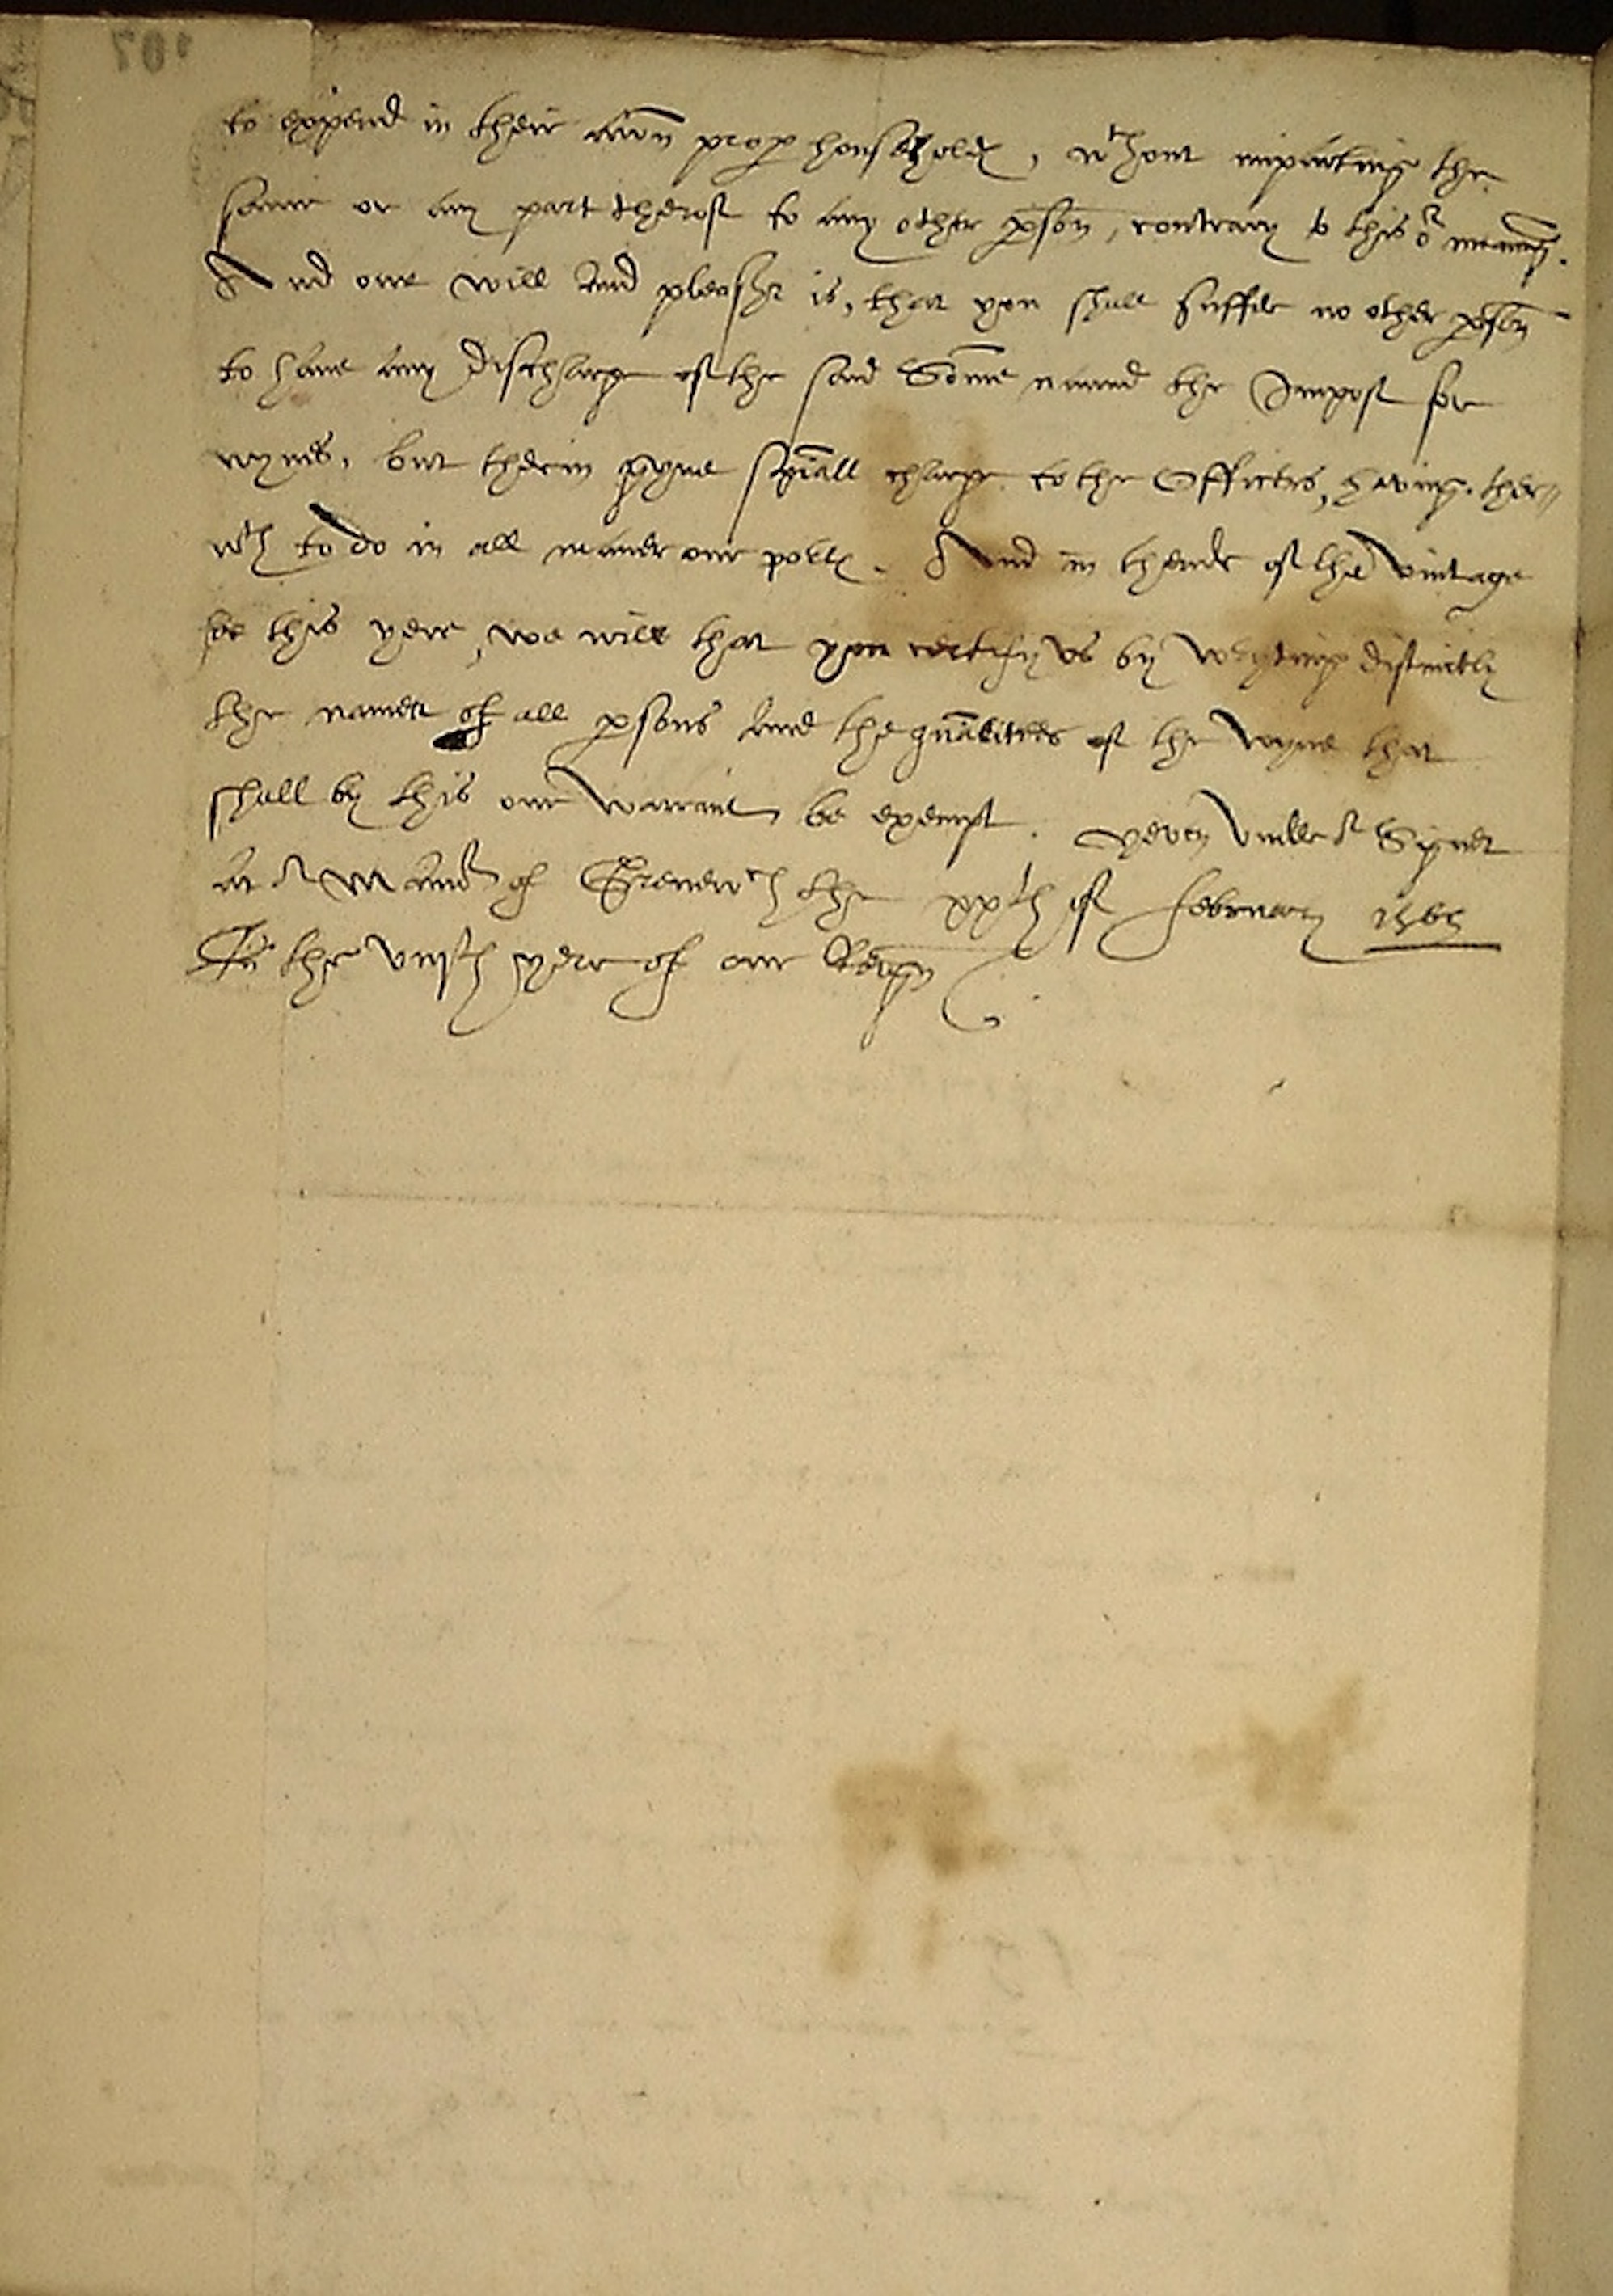 to expend in their awn prop housholdes, wthout imparting the
same or any part therof to any other pson, contrary to this or meaning.
And our will and pleasur is, that you shall suffer no other pson
to have any discharge of the said Some named the Impost for
wynes, but therin gyve spiall charge to the Officers, having ther//
wth to do in all maner our portes. And in thende of the vintage
for this yere, we will that you certify us by wryting distinctly
the names of all psons and the quatitees of the wyne that
shall by this our warrant be exempt. yeven under or Signet
at or Manor of Grenewch the xxth of February 1565
In the viijth yere of our Reign